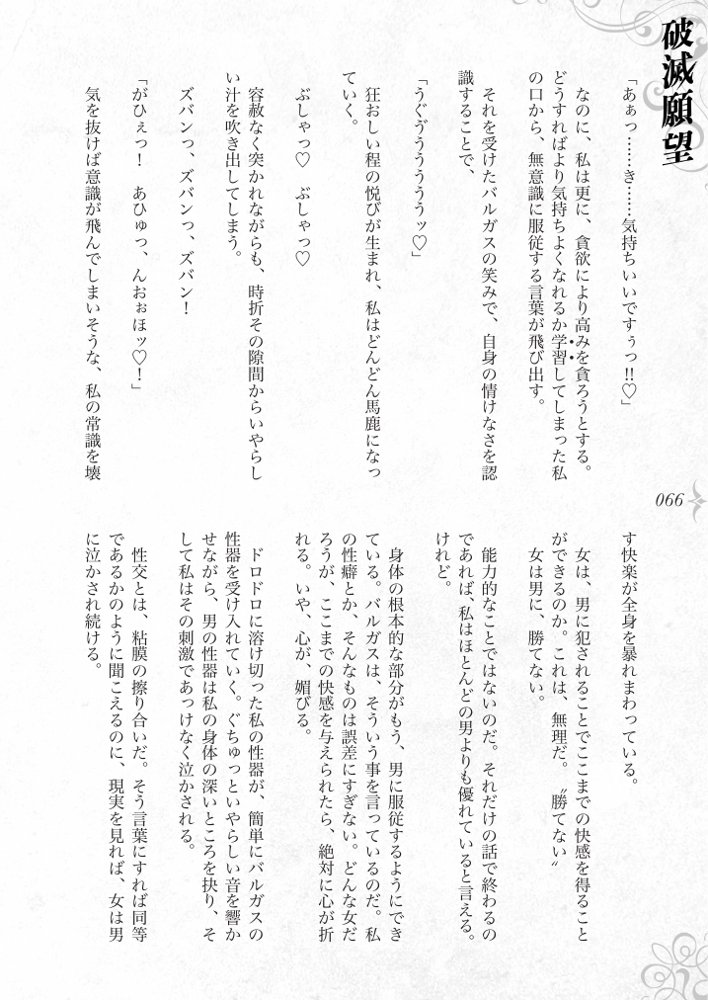 破滅願望
「あぁっ……き……気持ちいいですぅっ!!♡」
なのに、私は更に、貪欲により高みを貪ろうとする。
どうすればより気持ちよくなれるか学習してしまった私
の口から、無意識に服従する言葉が飛び出す。
それを受けたバルガスの笑みで、自身の情けなさを認
識することで、
「うぐゔううううッ♡」
狂おしい程の悦びが生まれ、私はどんどん馬鹿になっ
ていく。
ぶしゃっ♡　ぶしゃっ♡
容赦なく突かれながらも、時折その隙間からいやらし
い汁を吹き出してしまう。
ズバンっ、ズバンっ、ズバン！
「がひぇっ！　あひゅっ、んおぉほッ♡！」
気を抜けば意識が飛んでしまいそうな、私の常識を壊
す快楽が全身を暴れまわっている。
女は、男に犯されることでここまでの快感を得ること
ができるのか。これは、無理だ。〝勝てない〟
女は男に、勝てない。
能力的なことではないのだ。それだけの話で終わるの
であれば、私はほとんどの男よりも優れていると言える。
けれど。
身体の根本的な部分がもう、男に服従するようにでき
ている。バルガスは、そういう事を言っているのだ。私
の性癖とか、そんなものは誤差にすぎない。どんな女だ
ろうが、ここまでの快感を与えられたら、絶対に心が折
れる。いや、心が、媚びる。
ドロドロに溶け切った私の性器が、簡単にバルガスの
性器を受け入れていく。ぐちゅっといやらしい音を響か
せながら、男の性器は私の身体の深いところを抉り、そ
して私はその刺激であっけなく泣かされる。
性交とは、粘膜の擦り合いだ。そう言葉にすれば同等
であるかのように聞こえるのに、現実を見れば、女は男
に泣かされ続ける。
066